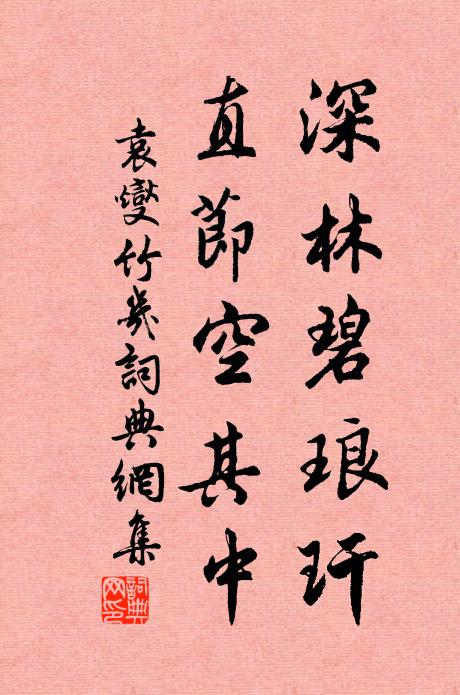 深林碧琅玕
直節空其中
袁燮竹几詞典網集
詞典網印